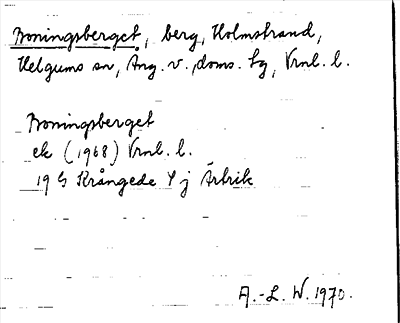 Boningsberget, berg, Holmstrand,
Helgums sn, Ång. v. doms. tg, Vrnl. l.
Boningsberget
ek (1968) Vrnl. l.
19 G Krångede 4 j Ärtrik
A.-L. W. 1970.